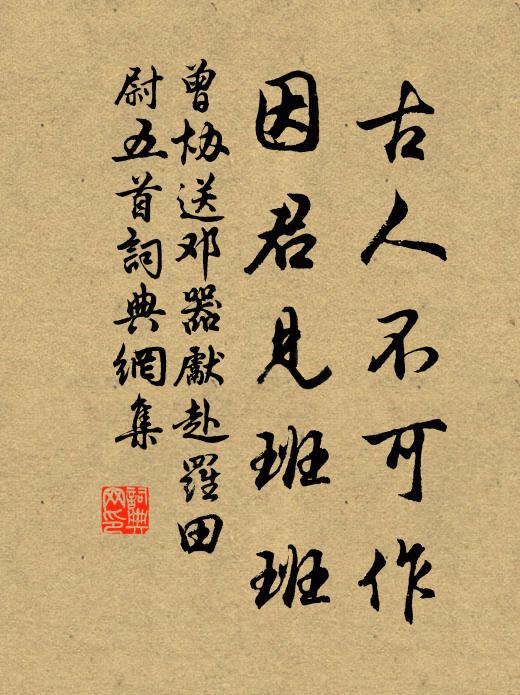 古人不可作
因君见班班
曾协送邓器獻赴羅田
尉五首詞典網集
詞典
网印